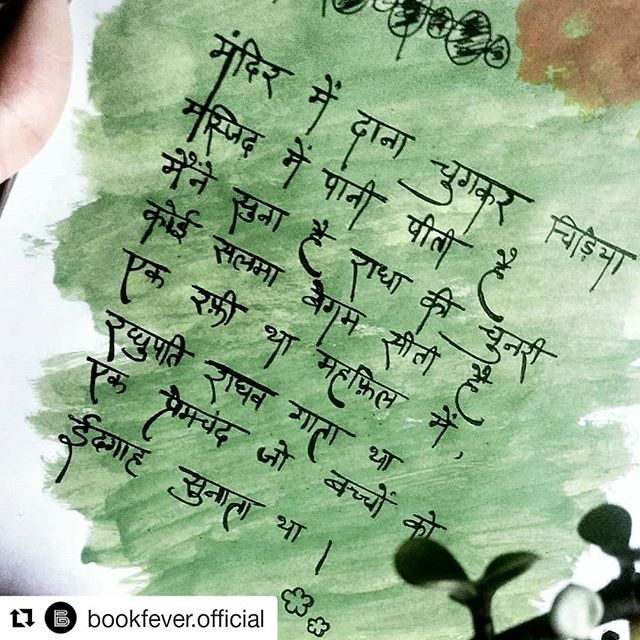 मंदिर में दाना चुगकर चिड़िया
मस्जिद में पानी पीती है
मैंने सुना है राधा की चुनरी
कोई सलमा बेगम सीती है
एक रफ़ी था महफ़िल में,
रघुपति राघव गाता था
एक प्रेमचंद जो बच्चों को
ईदगाह सुनाता था।
bookfever.official